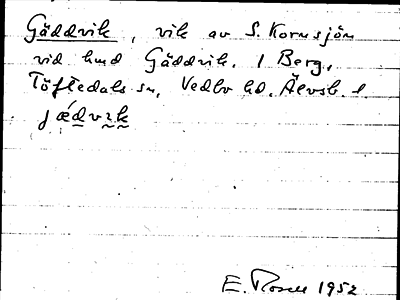 Gäddvik, vik av S. Kornsjön
vid hmd Gäddvik. 1 Berg,
Töftedals sn, Vedbo hd. Älvsb. l.
jǽdvɪk
E. Rosell 1952